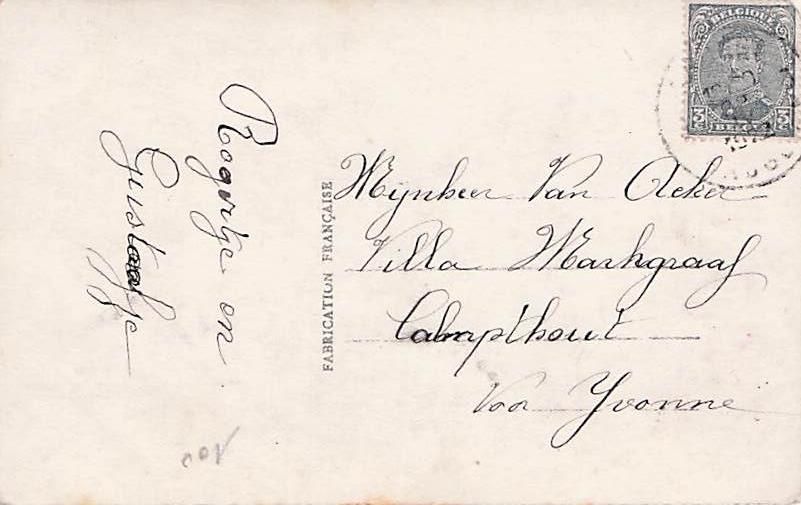 Rogertje en
Gustaafje
FABRICATION FRANÇAISE
Mijnheer Van Acker
Villa Markgraaf
Calmpthout
Voor Yvonne
BELGIQUE
3 3
BELGIË